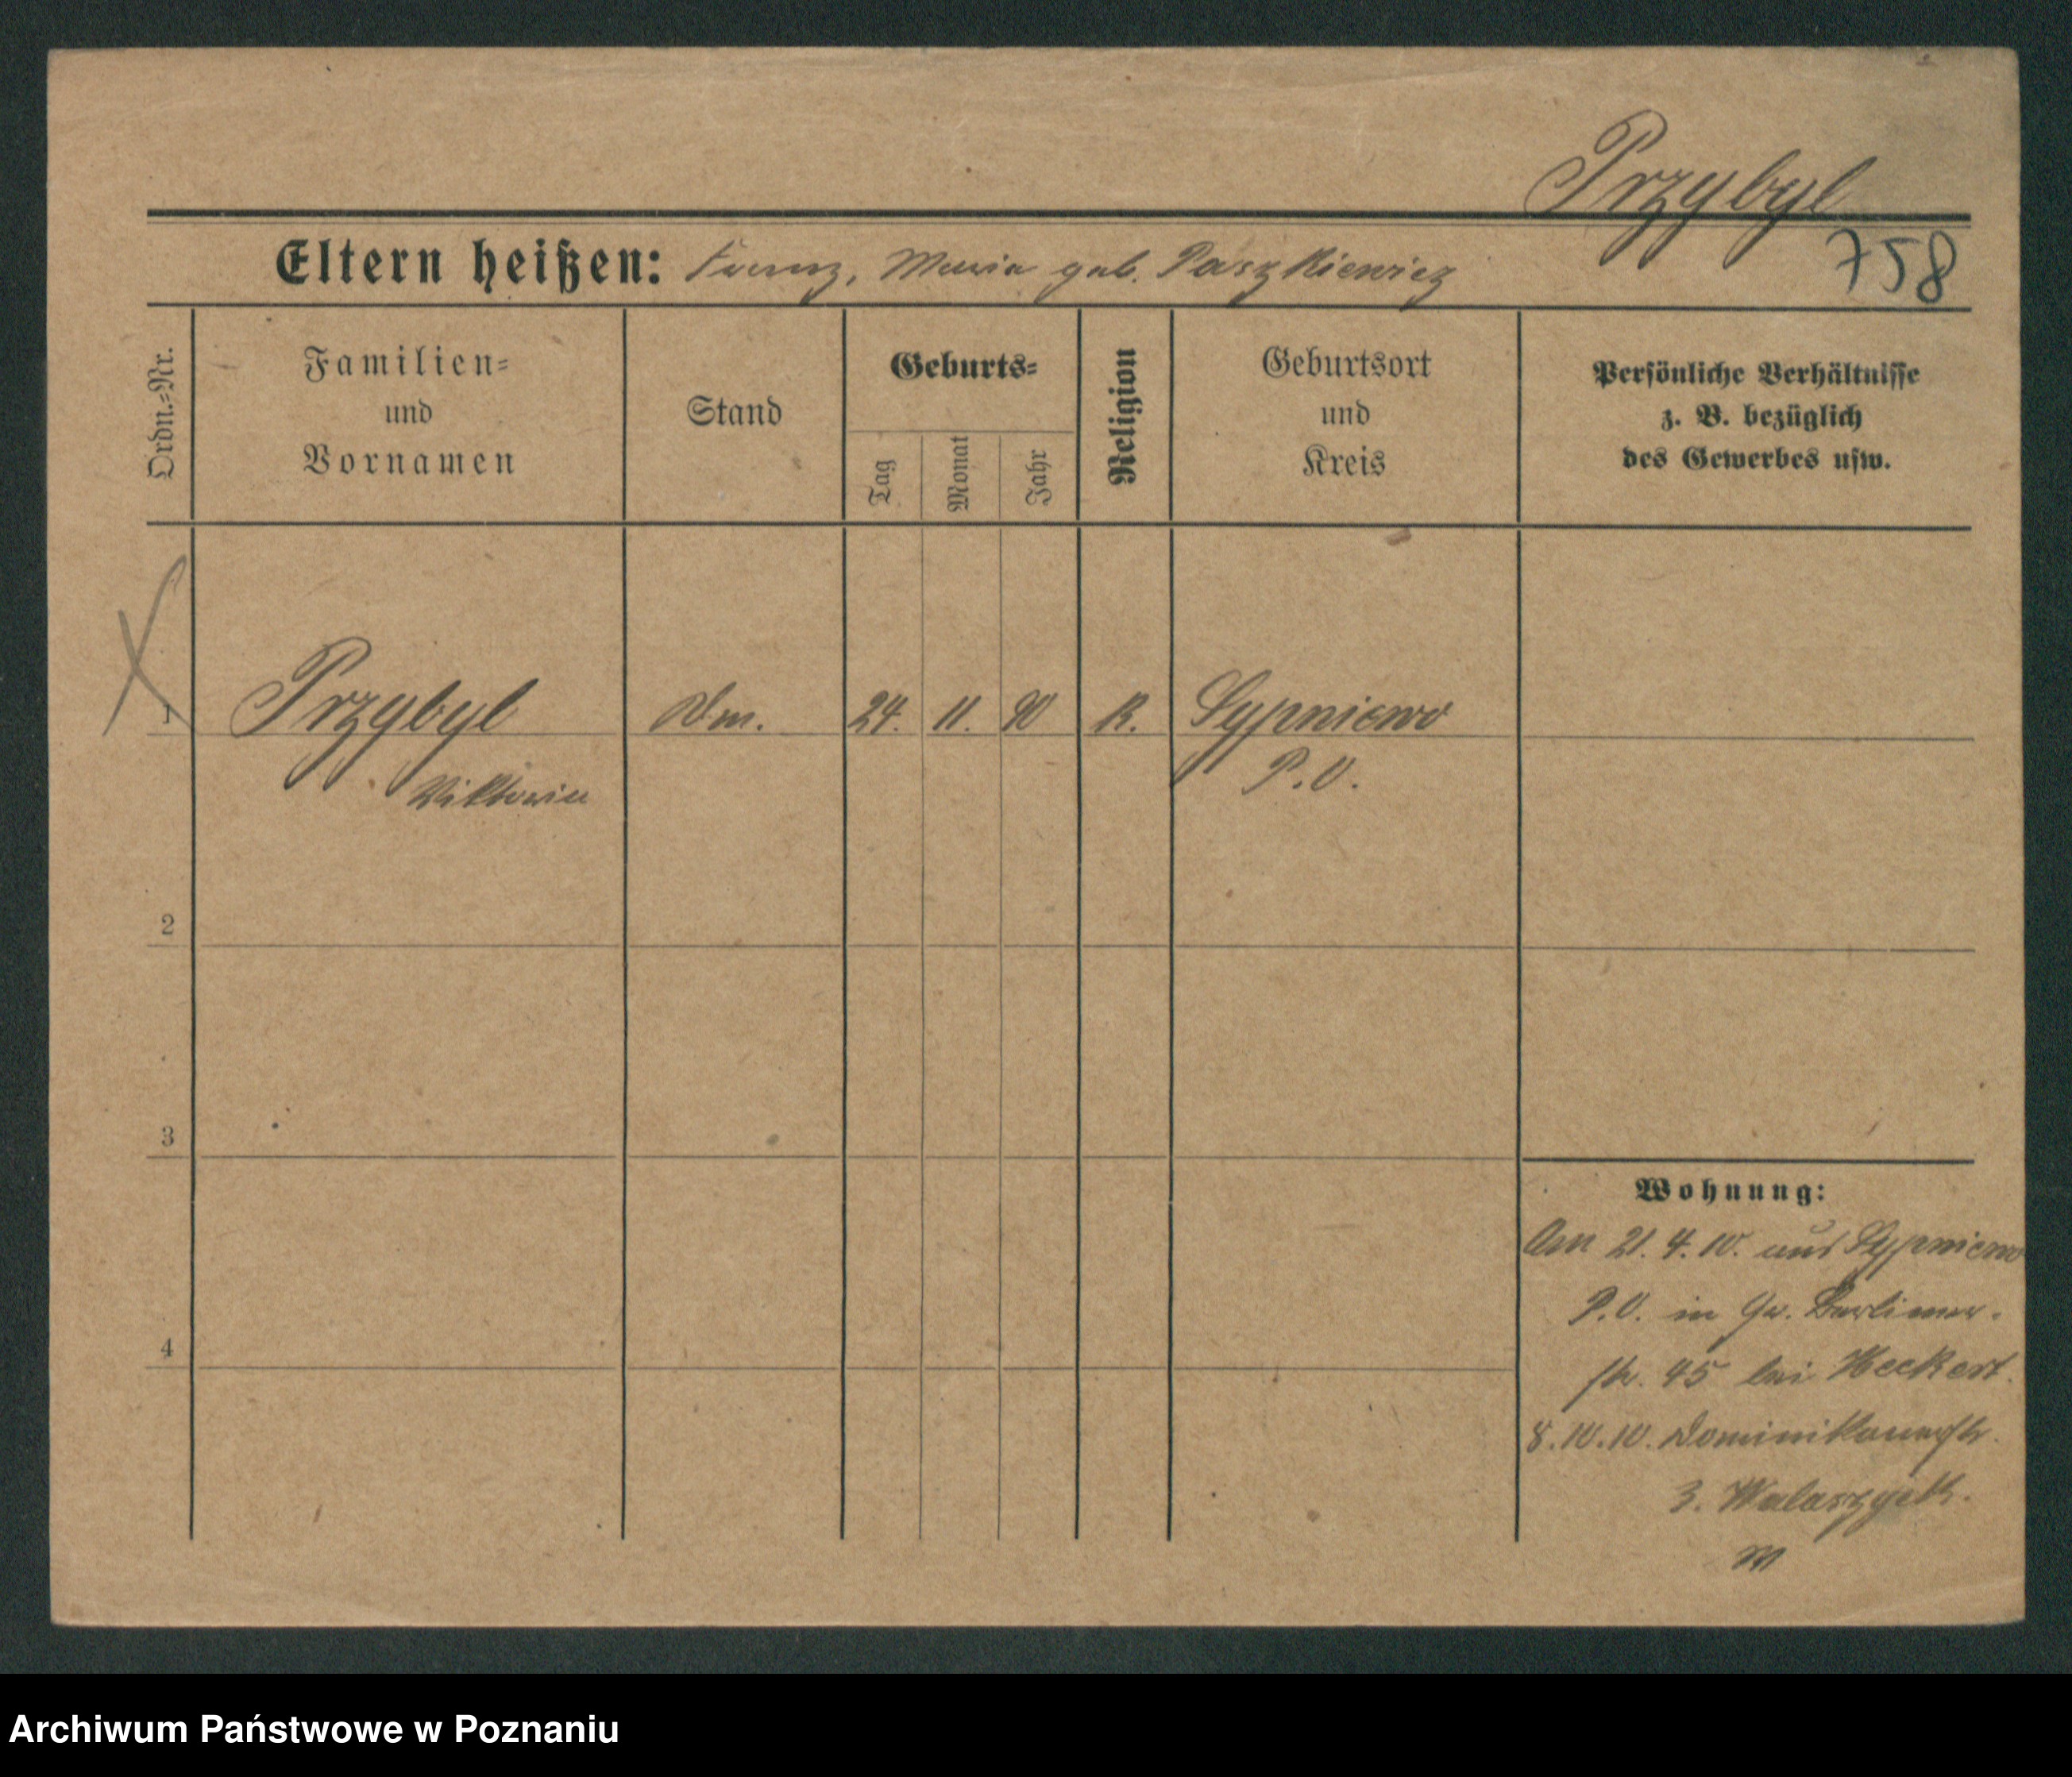 Przybyl
Eltern heißen: Franz, Maria geb. Paszkiewicz
758
Ordn.-Nr.
Familien-
und
Vornamen
Stand
Geburts-
Tag
Monat
Jahr
Religion
Geburtsort
und
Kreis
Persönliche Verhältnisse
z. B. bezüglich
des Gewerbes usw.
1 Przybyl Dm. 24. 11. 90 K. Sypniewo
Viktoria P.O.
2
3
4
Wohnung:
Am 21.4.10. aus Sypniewo
P.O. in Gr. Berliner-
str. 45 bei Heckert.
8.10.10. Dominikanerstr.
3. Walaszyk.
M
Archiwum Państwowe w Poznaniu